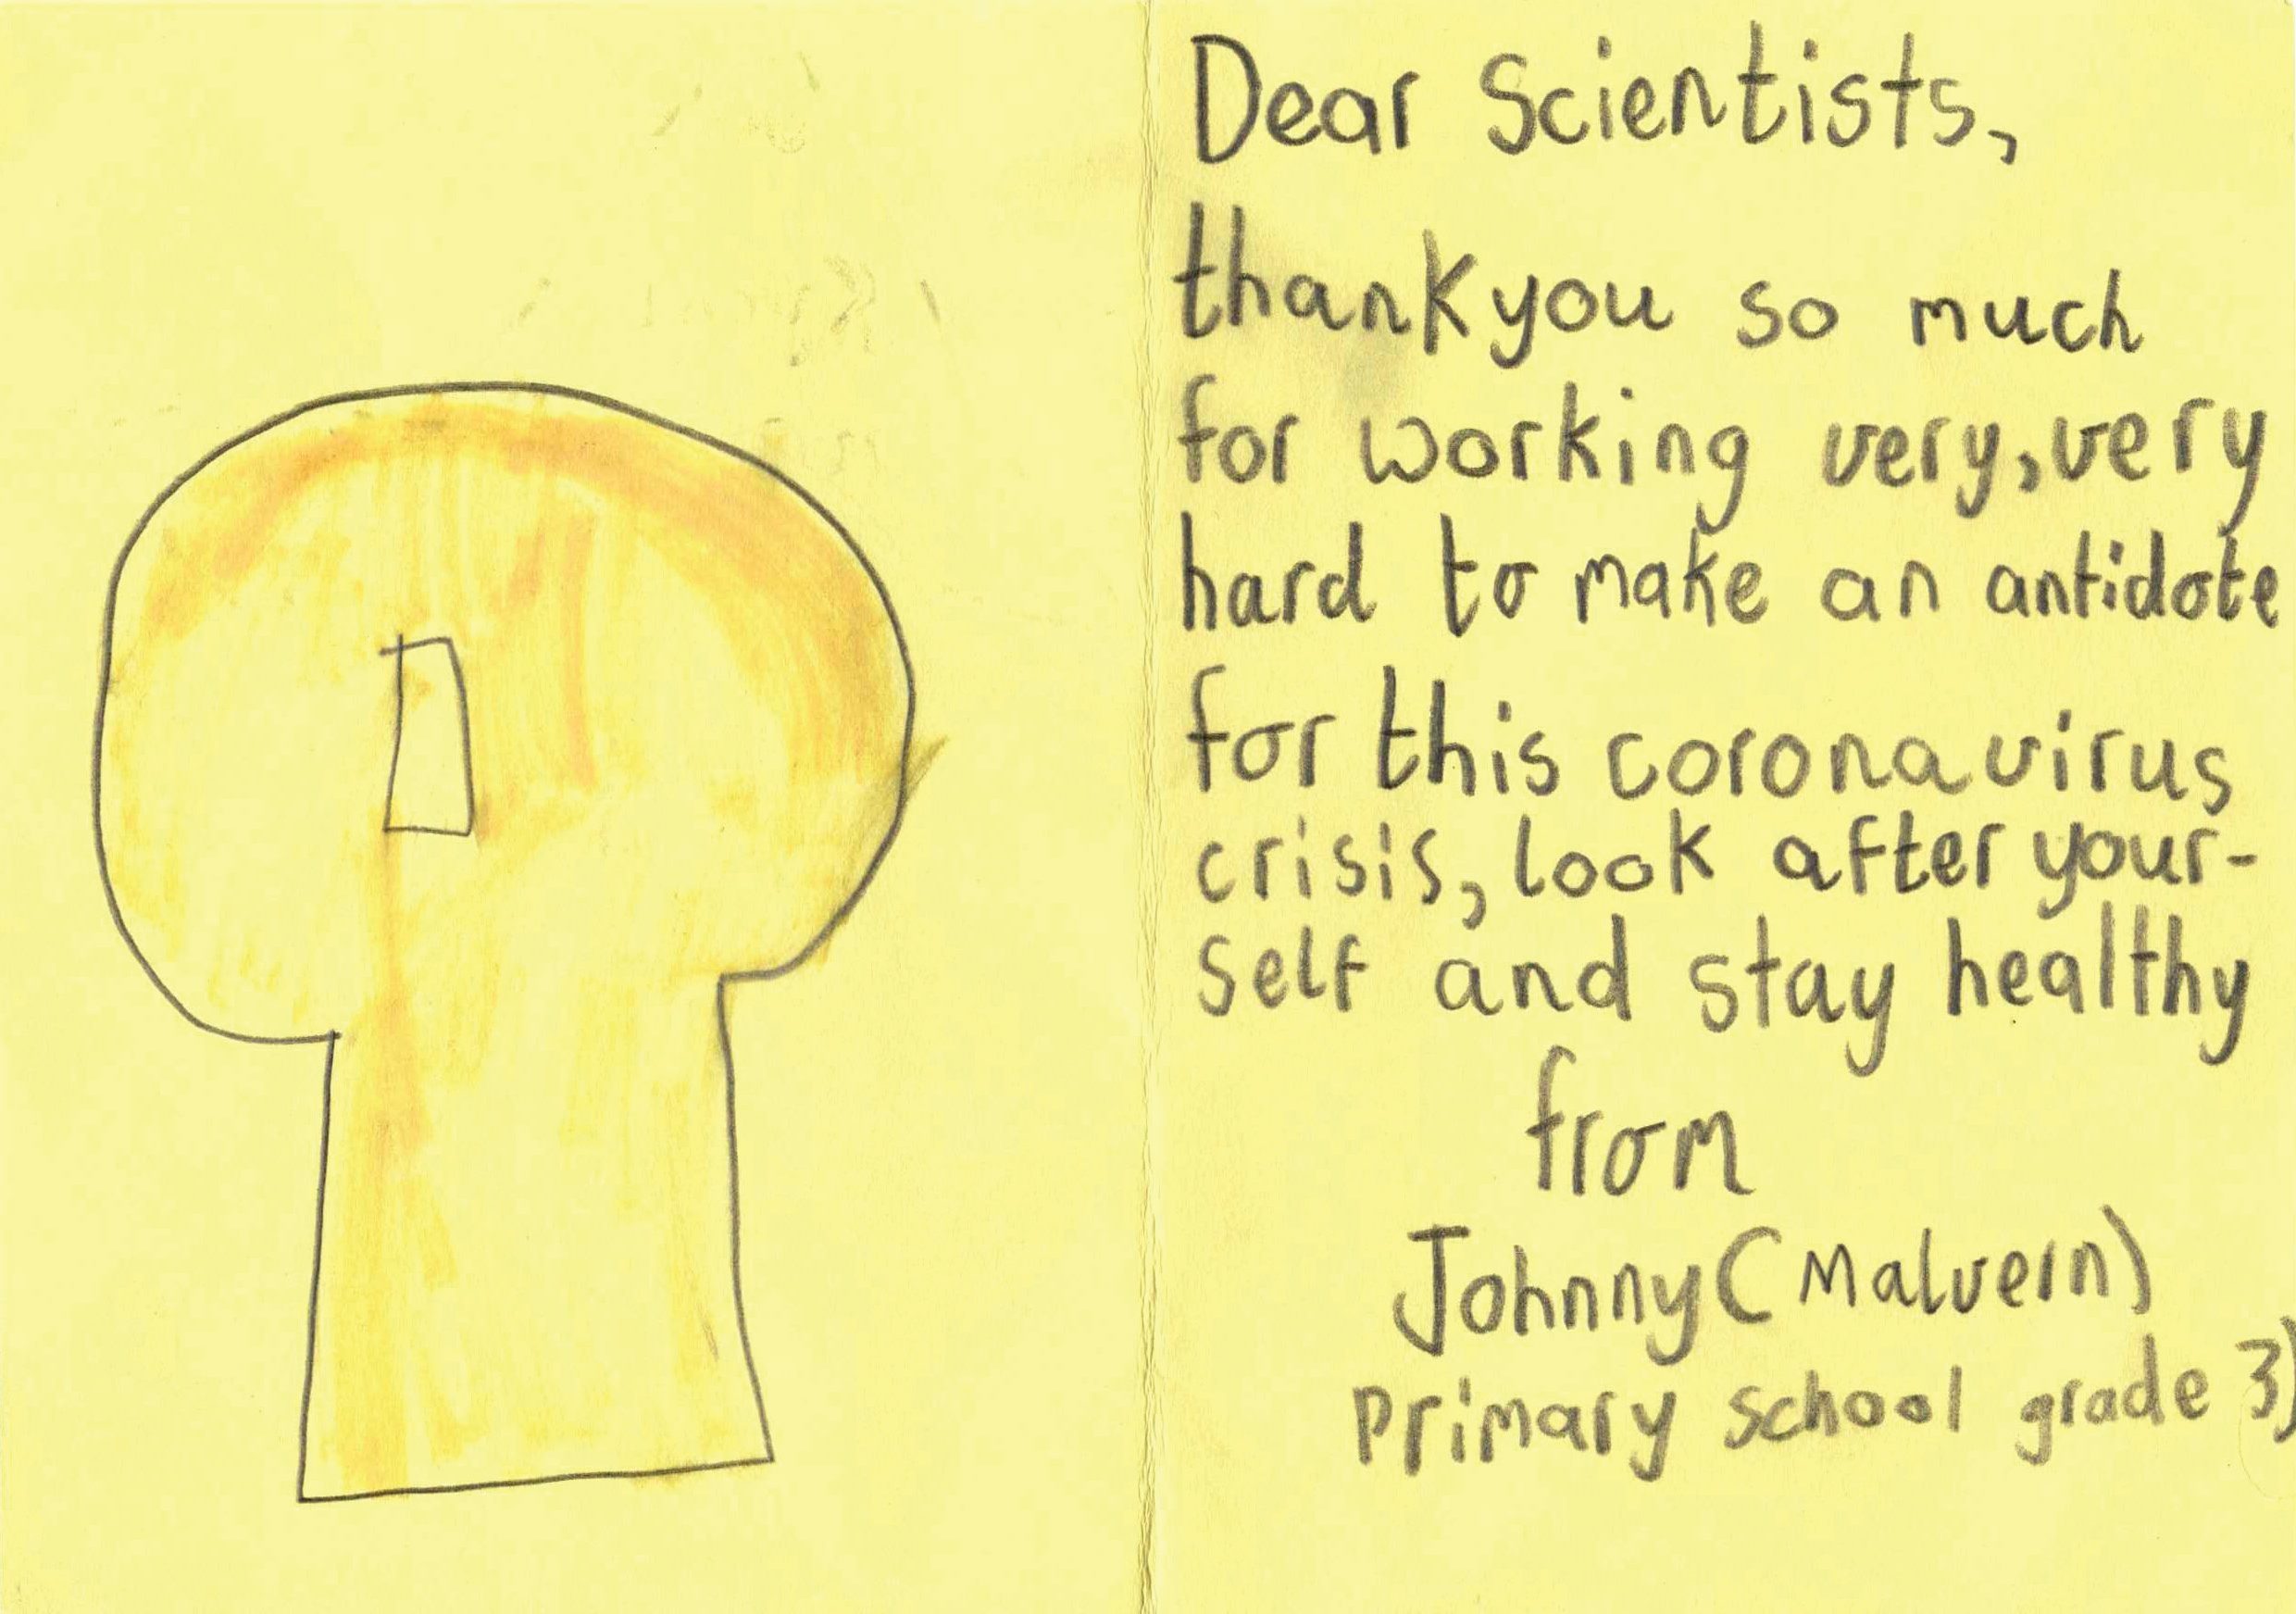 Dear Scientists,
thankyou so much
for working very, very
hard to make an antidote
for this coronavirus
crisis, look after your-
self and stay healthy
from
Johnny (Malvern)
primary school grade 3)